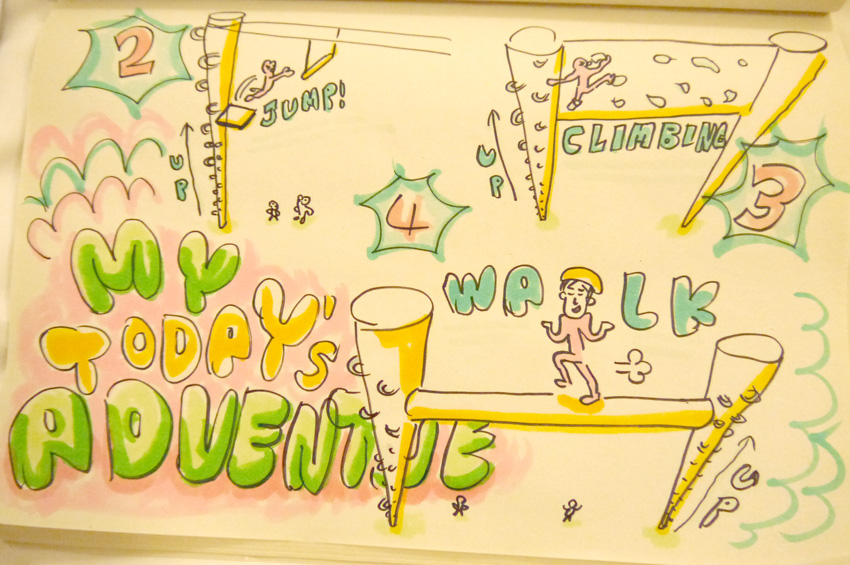 2
JUMP!
UP
CLIMBING
UP
3
4
MY
TODAY'S
ADVENTUE
WALK
UP